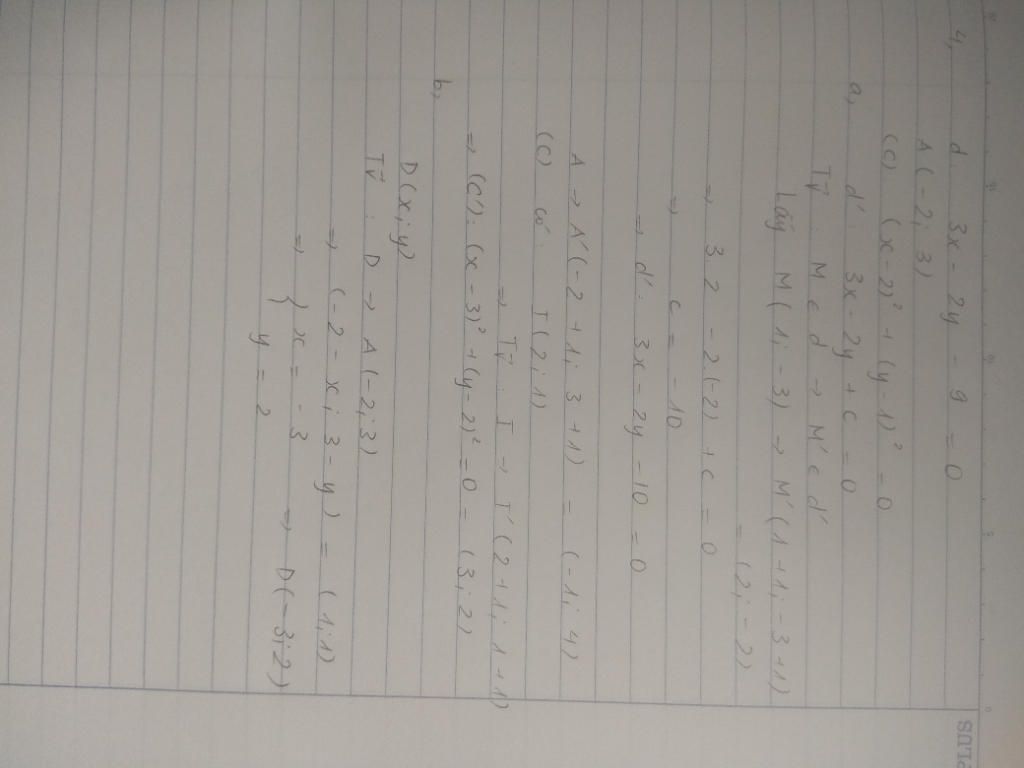 4, d: 3x - 2y - 9 = 0
A(-2; 3)
(C) (x-2)² + (y-1)² = 0
a, d': 3x - 2y + c = 0
Tv⃗: M ∈ d → M' ∈ d'
Lấy M(1; -3) → M'(1+1; -3+1)
= (2; -2)
⇒ 3.2 - 2.(-2) + c = 0
⇒ c = -10
→ d': 3x - 2y - 10 = 0
A → A'(-2+1; 3+1) = (-1; 4)
(C) có: I(2; 1)
⇒ Tv⃗: I → I'(2+1; 1+1)
⇒ (C'): (x-3)² + (y-2)² = 0 = (3; 2)
b,
D(x; y)
Tv⃗: D → A(-2; 3)
⇒ (-2-x; 3-y) = (1; 1)
⇒ { x = -3 ⇒ D(-3; 2)
y = 2